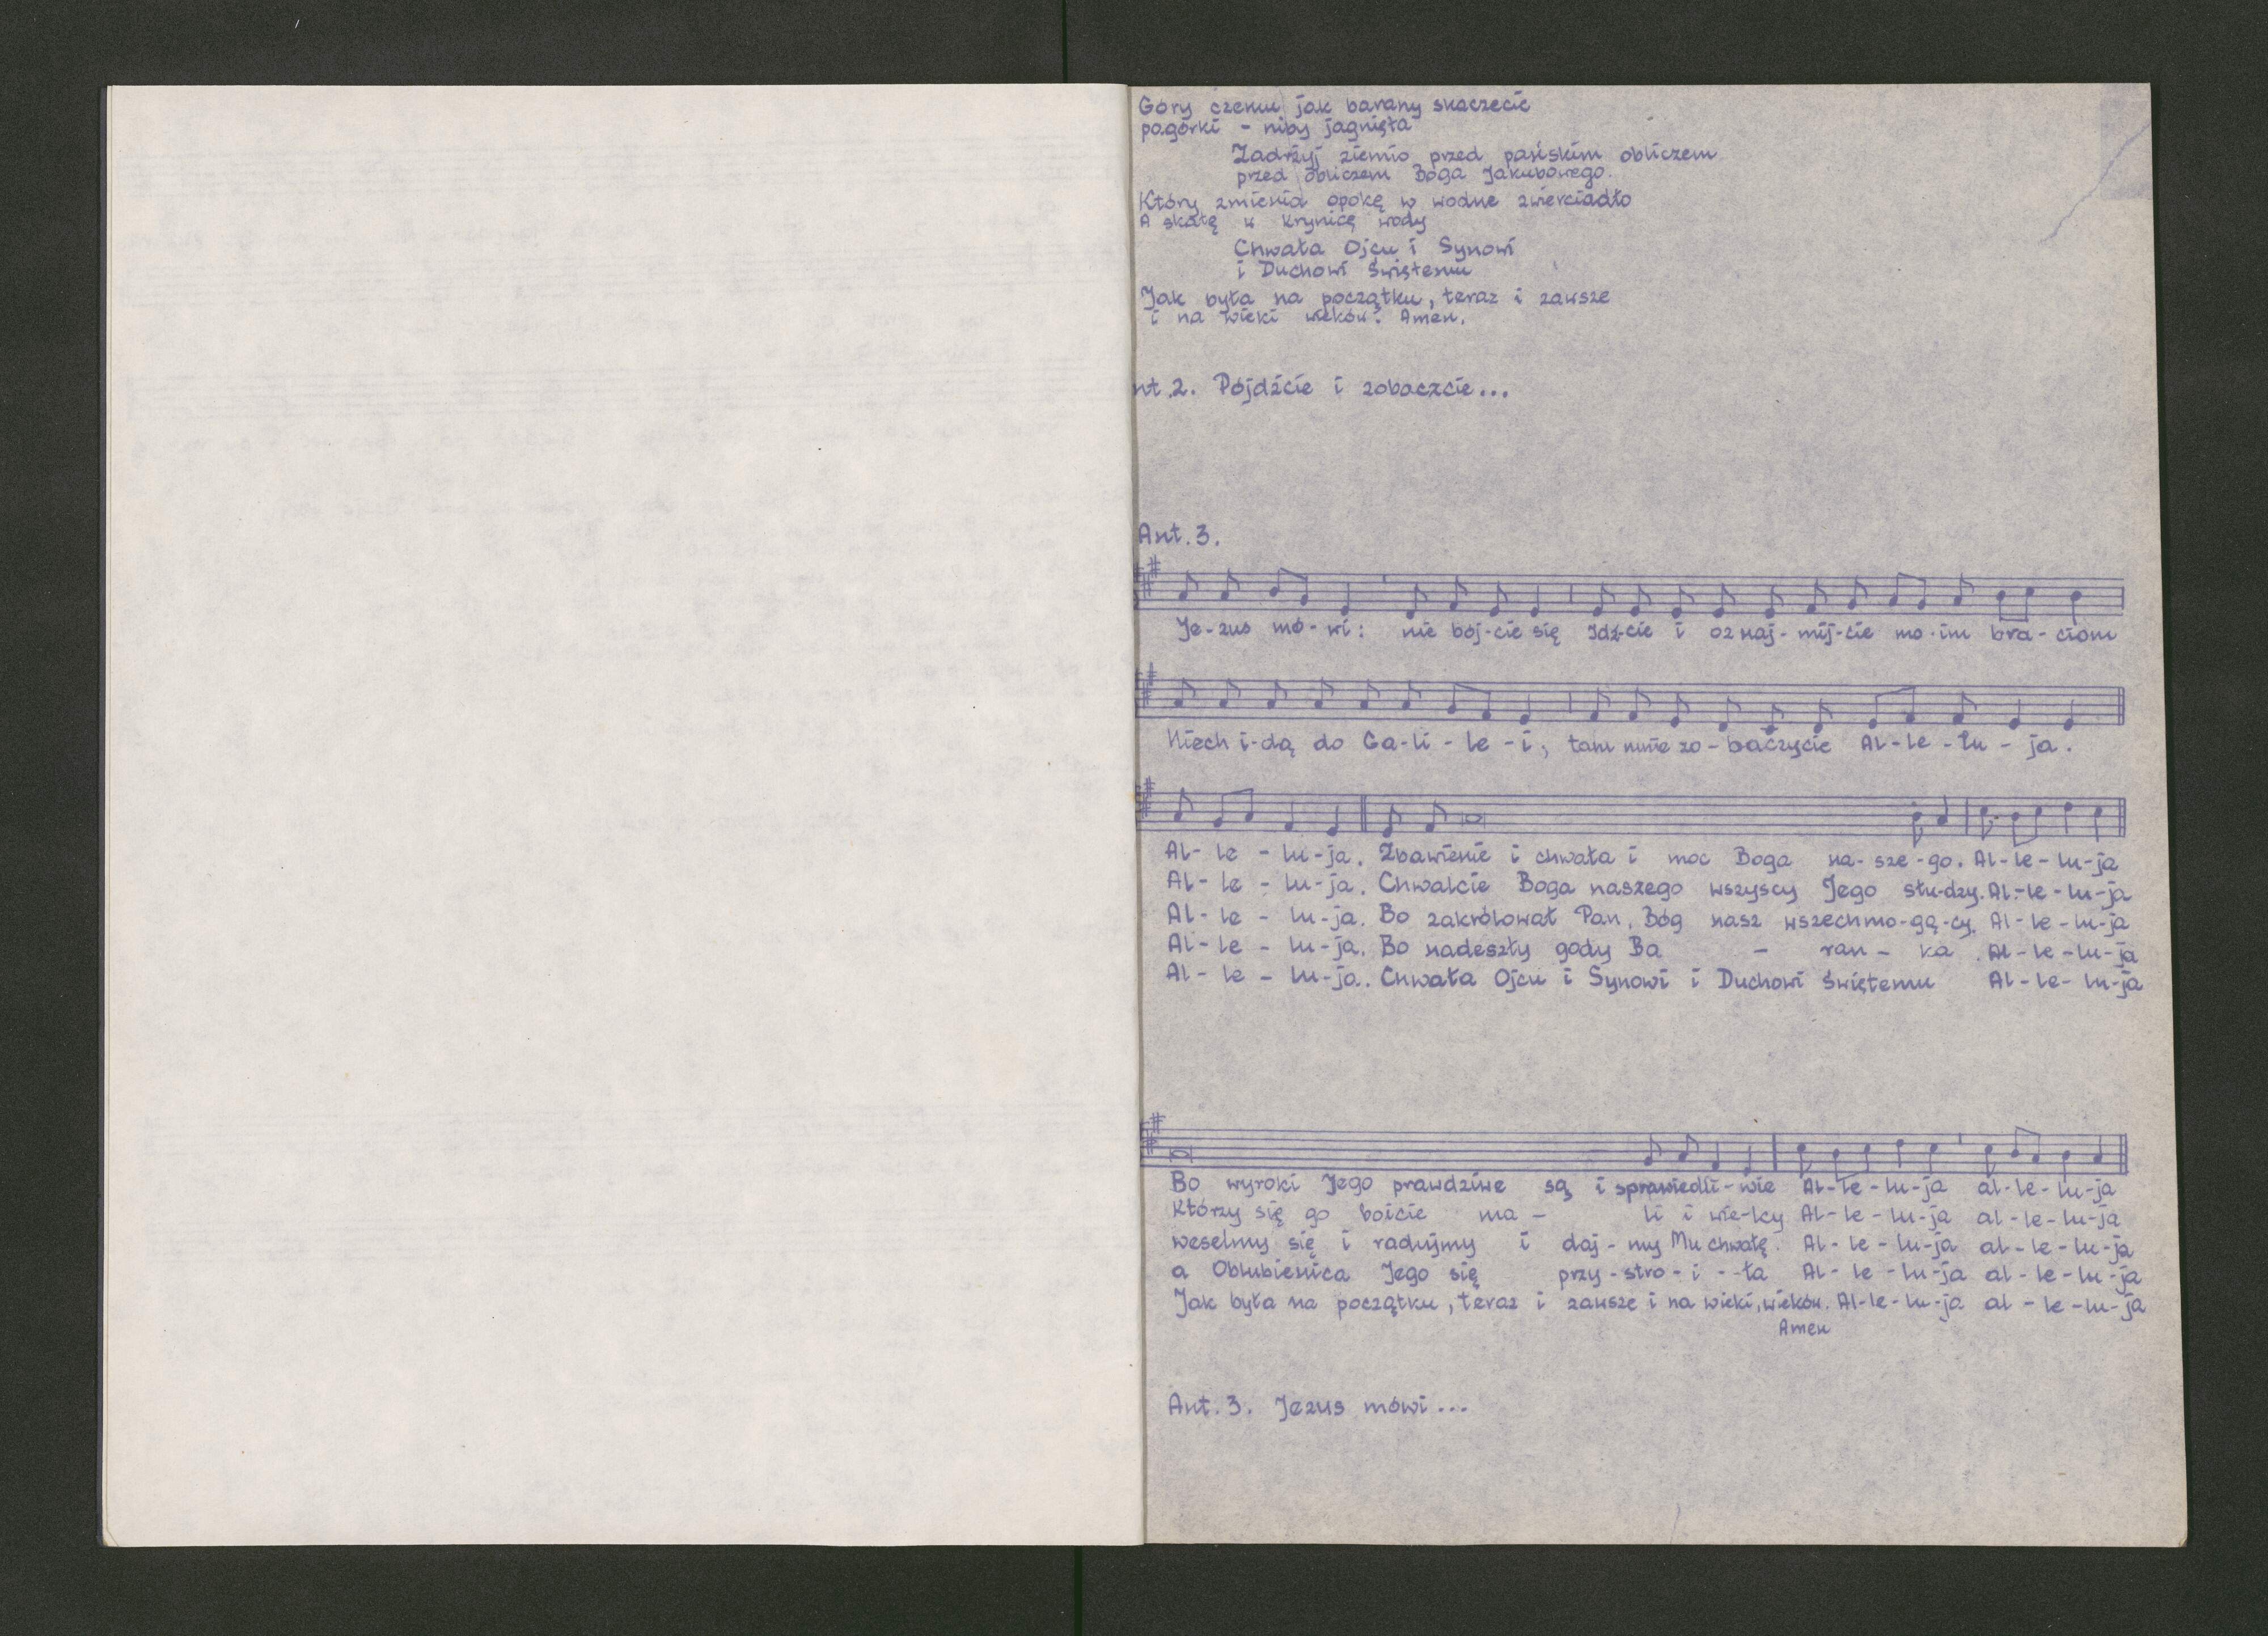 Góry czemu jak barany skaczecie
pagórki - niby jagnięta
Zadrżyj ziemio przed pańskim obliczem
przed obliczem Boga Jakubowego.
Który zmienia opokę w wodne zwierciadło
A skałę w krynicę wody
Chwała Ojcu i Synowi
i Duchowi Świętemu
Jak była na początku, teraz i zawsze
i na wieki wieków. Amen.
nt.2. Pójdźcie i zobaczcie...
Ant.3.
Je-zus mó-wi: nie bój-cie się Idź-cie i oznaj-mij-cie mo-im bra-ciom
Niech i-dą do Ga-li-le-i, tam mnie zo-baczycie Al-le-lu-ja.
Al-le-lu-ja. Zbawienie i chwała i moc Boga na-sze-go. Al-le-lu-ja
Al-le-lu-ja. Chwalcie Boga naszego wszyscy Jego słu-dzy. Al-le-lu-ja
Al-le-lu-ja. Bo zakrólował Pan, Bóg nasz wszechmo-gą-cy. Al-le-lu-ja
Al-le-lu-ja. Bo nadeszły gody Ba - ran-ka. Al-le-lu-ja
Al-le-lu-ja. Chwała Ojcu i Synowi i Duchowi Świętemu Al-le-lu-ja
Bo wyroki Jego prawdziwe są i sprawiedli-wie Al-le-lu-ja al-le-lu-ja
Którzy się go boicie ma - li i wie-lcy Al-le-lu-ja al-le-lu-ja
weselmy się i radujmy i daj-my Mu chwałę. Al-le-lu-ja al-le-lu-ja
a Oblubienica Jego się przy-stro-i--ła Al-le-lu-ja al-le-lu-ja
Jak była na początku, teraz i zawsze i na wieki, wieków. Al-le-lu-ja al-le-lu-ja
Amen
Ant.3. Jezus mówi...